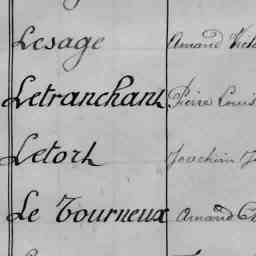 Lesage Amand
Letranchant Pierre Louis
Letort Joachim
Le Tourneux Amand